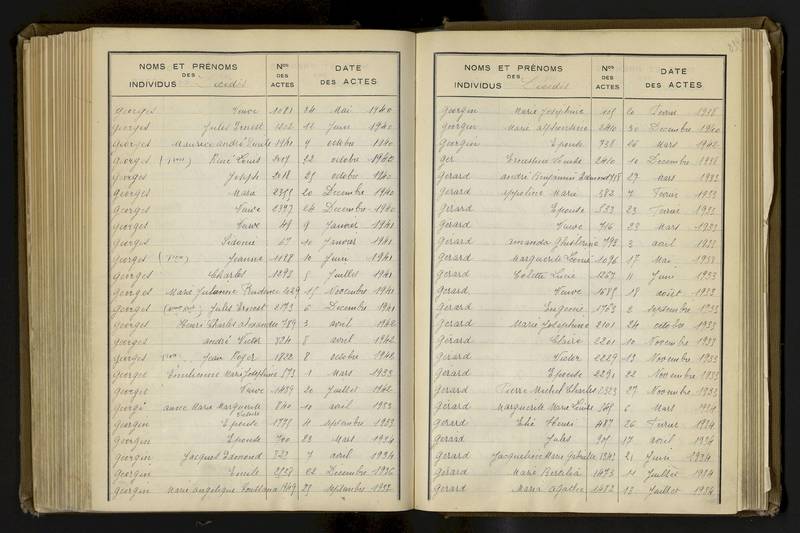 NOMS ET PRÉNOMS DES INDIVIDUS Décédés
Nos DES ACTES
DATE DES ACTES
georges Veuve 1081 24 Mai 1940
georges Jules Ernest 1202 12 Juin 1940
georges Maurice andré Emile 1941 9 octobre 1940
georges René Louis 22 octobre 1940
georges Joseph 2018 25 octobre 1940
georges Maria 20 Decembre 1940
georges Veuve 2397 26 Decembre 1940
georges Veuve 48 9 Janvier 1941
georges Sidonie 67 10 Janvier 1941
georges Jeanne 1188 10 Juin 1941
georges Charles 1292 5 Juillet 1941
georges Marie Julienne Prudence 15 Novembre 1941
georges Jules Ernest 2173 6 Decembre 1941
georges Henri Charles alexandre 789 3 avril 1942
georges andré Victor 824 8 avril 1942
georges Jean Roger 1822 8 octobre 1942
georges Emilienne Marie Joséphine 573 1 Mars 1933
georgie Veuve 1439 20 Juillet 1942
Georgé anne Marie Marguerite 840 10 avril 1933
georgin Epouse 1795 11 septembre 1933
georgin Epouse 700 23 Mars 1934
georgin Jacques Edmond 7 avril 1934
georgin Emile 22 Decembre 1936
georgin Marie angelique 25 septembre
NOMS ET PRÉNOMS DES INDIVIDUS Décédés
Nos DES ACTES
DATE DES ACTES
georgin Marie Joséphine 20 Fevrier 1938
georgin Marie alphonsine 2410 30 Decembre 1940
georgin Epouse 738 26 Mars 1942
ger Ernestine Louise 2410 10 Decembre 1938
Gerard andré Benjamin Edmond 718 27 Mars 1933
Gerard appoline Marie 382 7 Fevrier 1933
Gerard Epouse 533 23 Fevrier 1933
Gerard Veuve 716 23 Mars 1933
Gérard amanda Ghislaine 792 3 avril 1933
gerard Marguerite Leonie 1096 17 Mai 1933
gerard Colette Lucie 1267 11 Juin 1933
Gerard Veuve 1685 18 août 1933
Gerard Eugenie 1763 2 septembre 1933
gerard Marie Joséphine 2101 24 octobre 1933
gerard Claire 2201 10 Novembre 1933
gerard Victor 2229 13 Novembre 1933
Gerard Epouse 2290 22 Novembre 1933
gerard Pierre Michel Charles 2323 27 Novembre 1933
Gerard Marguerite Marie Louise 6 Mars 1934
Gerard Elie Henri 487 26 Fevrier 1934
Gerard Jules 907 17 avril 1934
gerard Jacqueline Marie gabrielle 1342 21 Juin 1934
gerard Marie Bertilia 1473 11 Juillet 1934
Gerard Maria agathe 1482 13 Juillet 1934